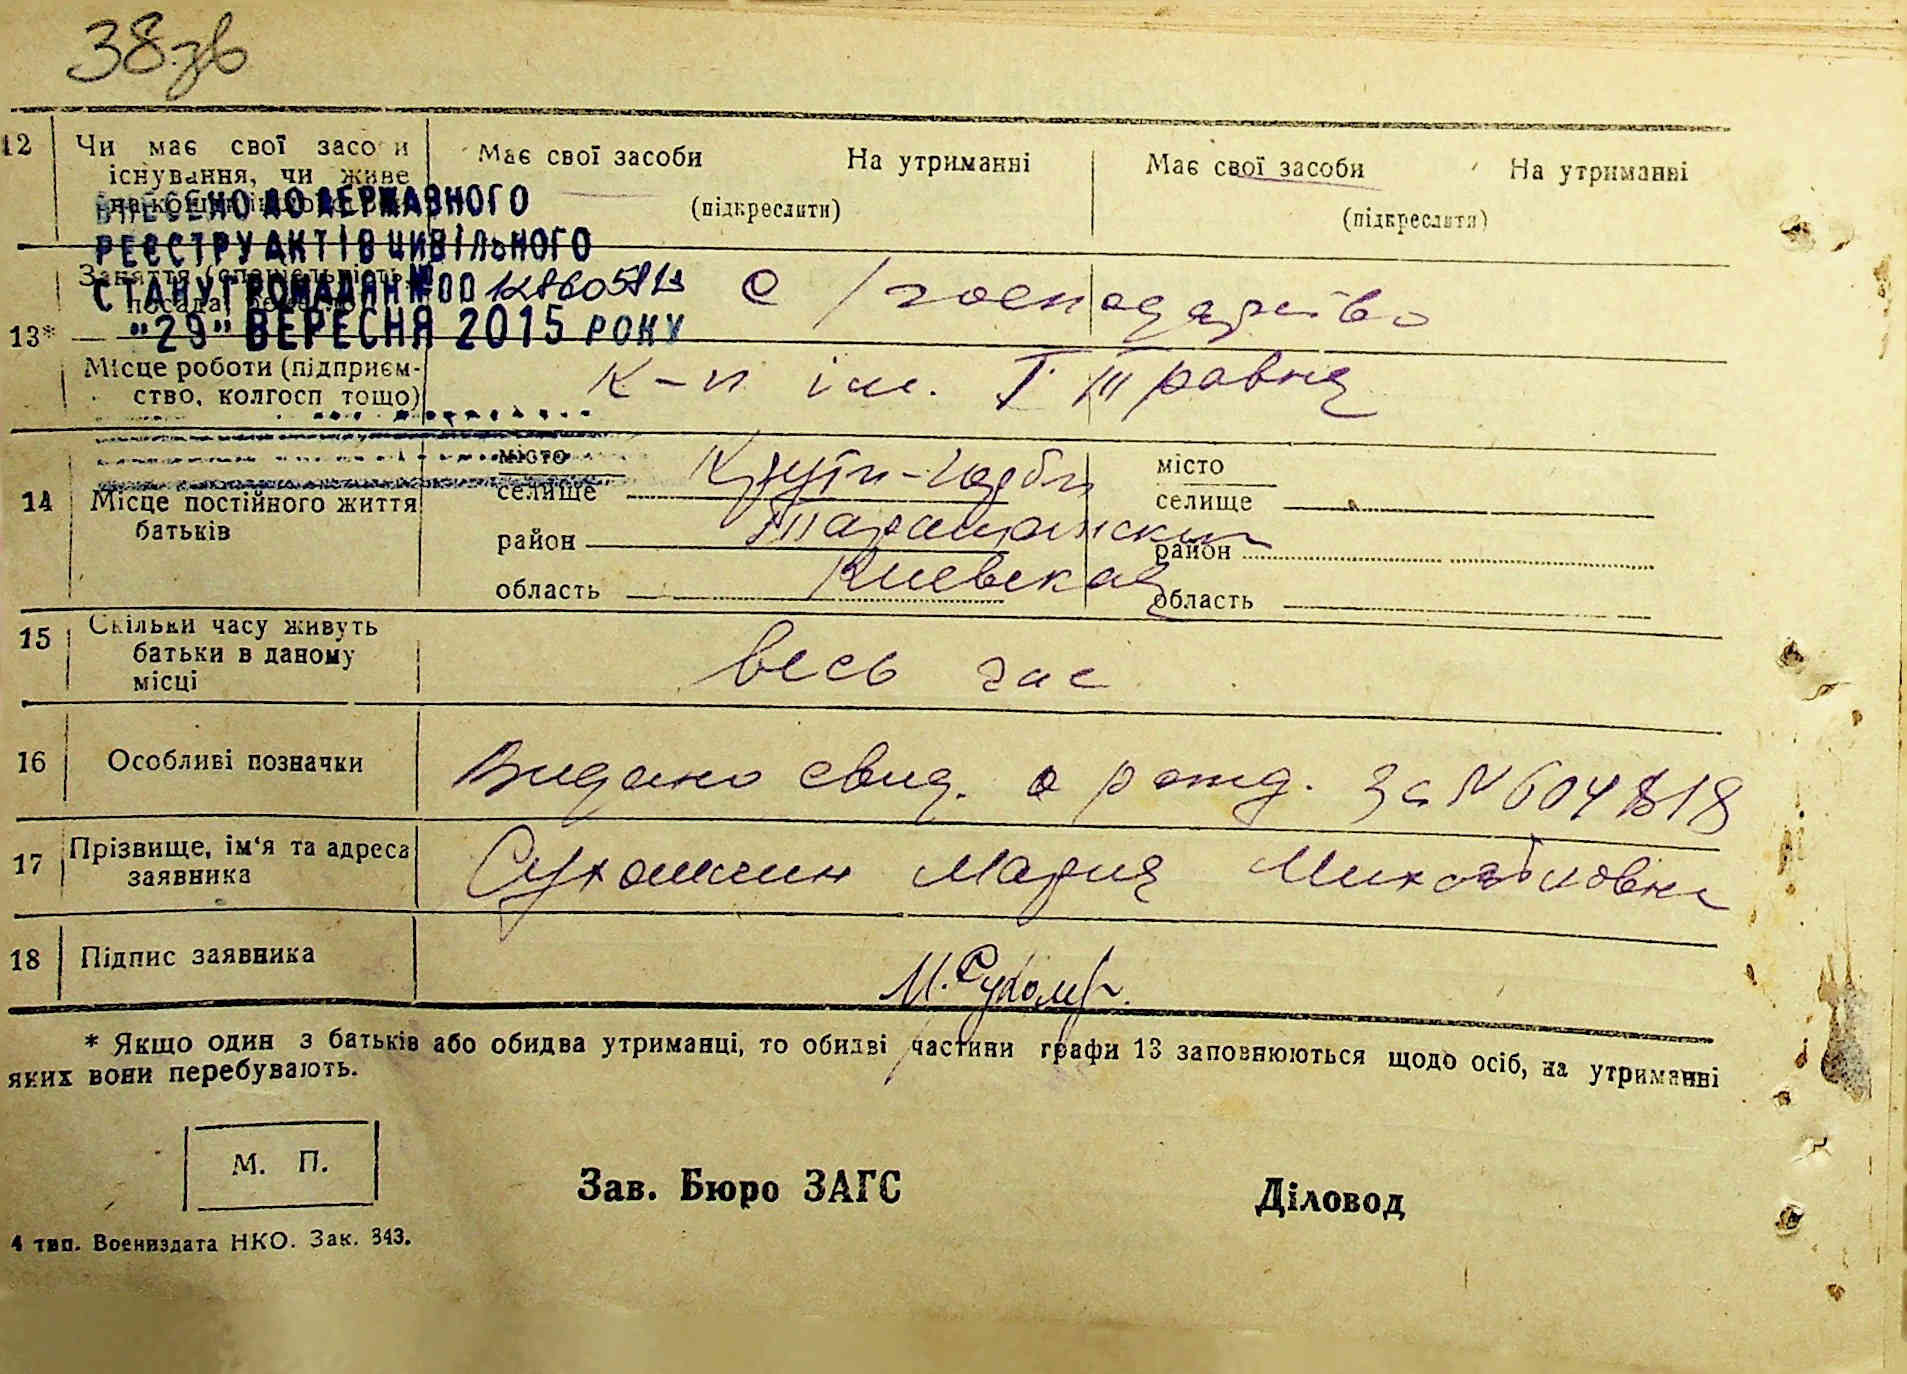 38 зв
12 Чи має свої засоби Має свої засоби На утриманні Має свої засоби На утриманні
існування, чи живе
(підкреслити) (підкреслити)
ВНЕСЕНО ДО ДЕРЖАВНОГО
РЕЄСТРУ АКТІВ ЦИВІЛЬНОГО
СТАНУ ГРОМАДЯН № 00
"29" ВЕРЕСНЯ 2015 РОКУ
13*
Заняття (спеціальність,
посада,
С/господарство
Місце роботи (підприєм-
ство, колгосп тощо)
к-п ім. 1 Травня
14 Місце постійного життя
батьків
місто
селище Крути-Горби
район Таращанский
область Киевская
місто
селище
район
область
15 Скільки часу живуть
батьки в даному
місці
весь час
16 Особливі позначки Видано свид. о рожд. за №
17 Прізвище, ім'я та адреса
заявника
Мария Михайловна
18 Підпис заявника
М.
* Якщо один з батьків або обидва утриманці, то обидві частини графи 13 заповнюються щодо осіб, на утриманні
яких вони перебувають.
М. П.
Зав. Бюро ЗАГС Діловод
4 тип. Воениздата НКО. Зак. 343.